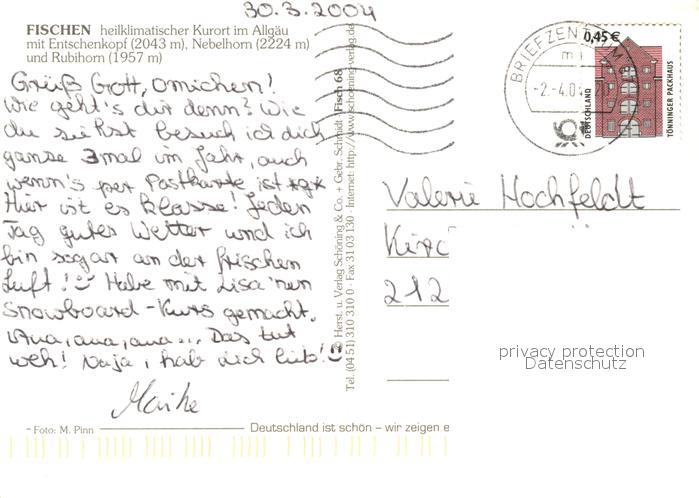 30.3.2004
FISCHEN heilklimatischer Kurort im Allgäu
mit Entschenkopf (2043 m), Nebelhorn (2224 m)
und Rubihorn (1957 m)
Grüß Gott, Omichen!
Wie geht's dir denn? Wie
du siehst besuch ich dich
ganze 3mal im Jahr, auch
wenn's per Postkarte ist *g*
Hier ist es klasse! Jeden
Tag gutes Wetter und ich
bin sogar an der frischen
Luft! Habe mit Lisa 'nen
Snowboard-Kurs gemacht.
Aua, aua, aua... Das tut
weh! Naja, hab dich lieb!
Maike
Foto: M. Pinn
Deutschland ist schön – wir zeigen e
© Herst. u. Verlag Schöning & Co. + Gebr. Schmidt Fisch 68
Tel. (04 51) 310 310 0 · Fax 31 03 130 · Internet: http://www.schoening-verlag.de
BRIEFZENTRUM
-2.-4.0
0,45 €
DEUTSCHLAND
TÖNNINGER PACKHAUS
Valerie Hochfeldt
Kirc
212
privacy protection
Datenschutz